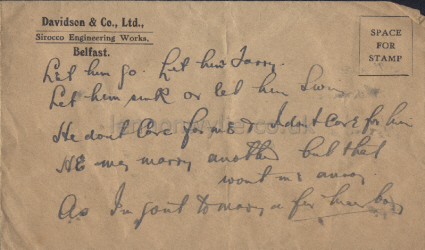 Davidson & Co., Ltd.,
Sirocco Engineering Works,
Belfast.
SPACE
FOR
STAMP
Let him go. Let him Tarry.
Let him sink or let him Swim
He dont Care for me & I dont Care for him
HE may marry another but that
wont me annoy
As Im goin to marry a far nicer boy